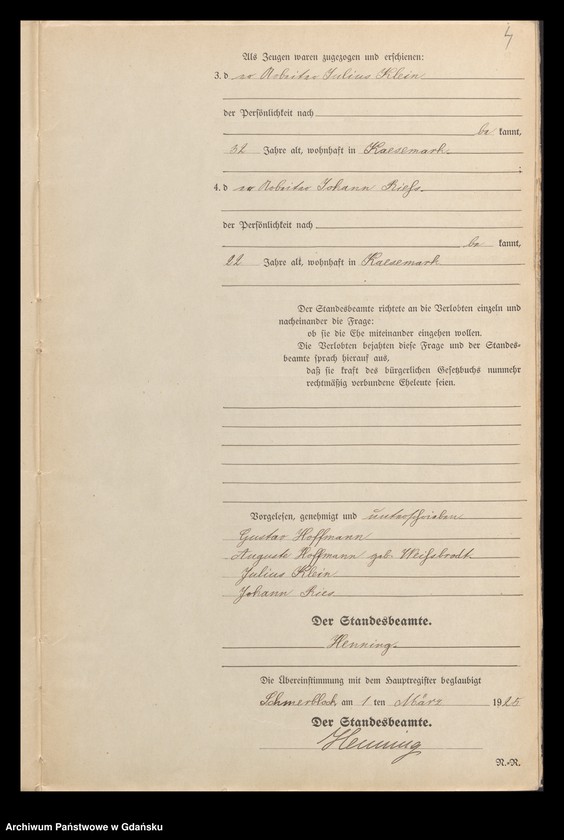 4
Als Zeugen waren zugezogen und erschienen:
3. d er Arbeiter Julius Klein
der Persönlichkeit nach
be kannt,
52 Jahre alt, wohnhaft in Kaesemark
4. d er Arbeiter Johann Rieß
der Persönlichkeit nach
be kannt,
22 Jahre alt, wohnhaft in Kaesemark
Der Standesbeamte richtete an die Verlobten einzeln und
nacheinander die Frage:
ob sie die Ehe miteinander eingehen wollen.
Die Verlobten bejahten diese Frage und der Standes-
beamte sprach hierauf aus,
daß sie kraft des bürgerlichen Gesetzbuchs nunmehr
rechtmäßig verbundene Eheleute seien.
Vorgelesen, genehmigt und unterschrieben
Gustav Hoffmann
Auguste Hoffmann geb. Weißbrodt
Julius Klein
Johann Ries
Der Standesbeamte.
Henning.
Die Übereinstimmung mit dem Hauptregister beglaubigt
Schmerblock am 1 ten März 1925
Der Standesbeamte.
Henning
N.-R.
Archiwum Państwowe w Gdańsku